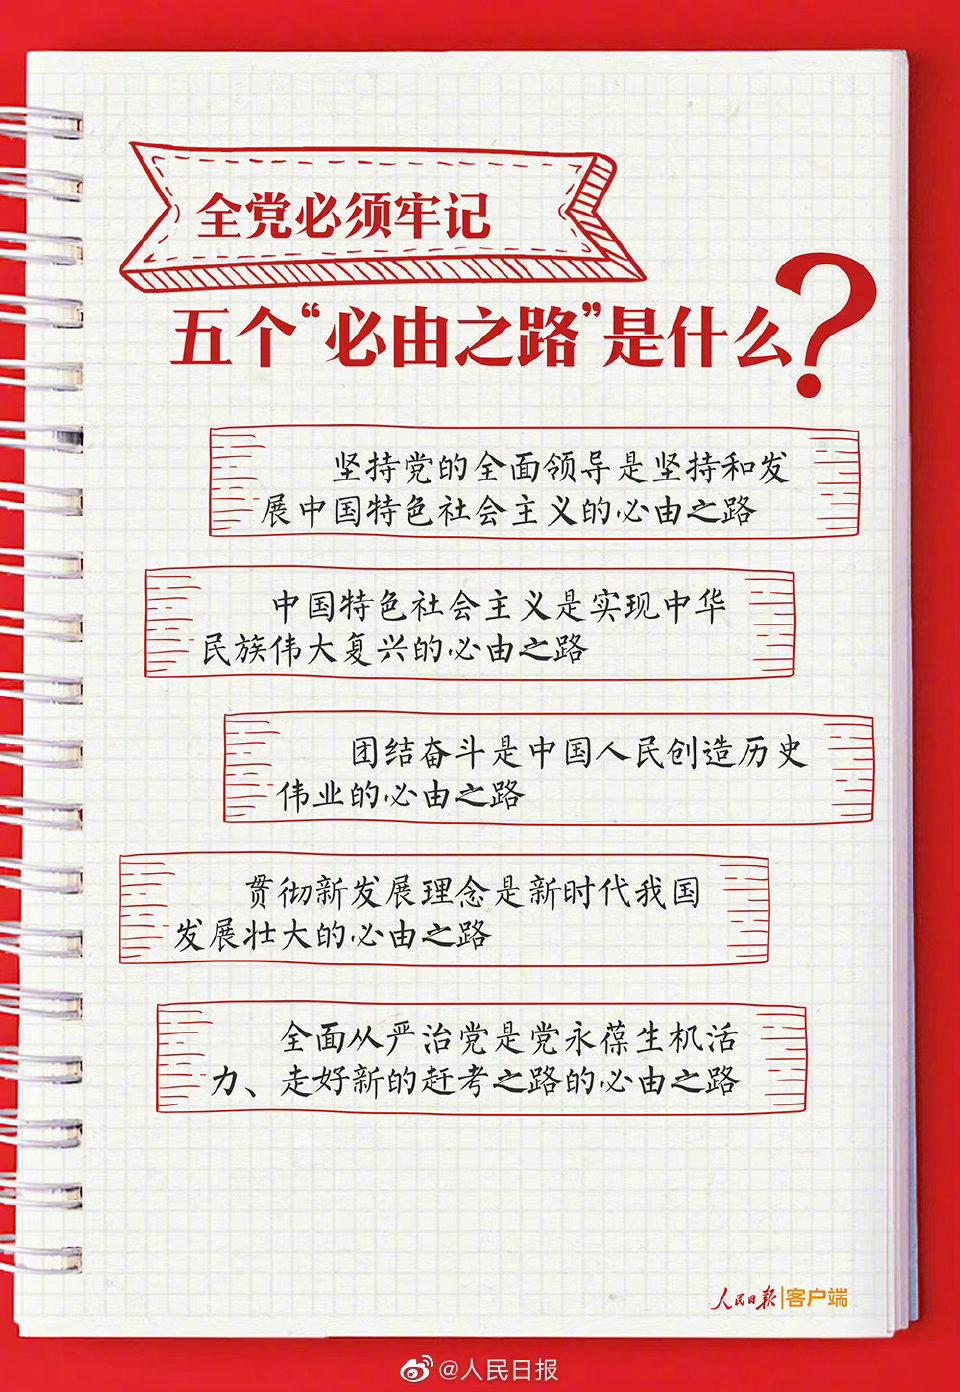 全党必须牢记
五个“必由之路”是什么?
坚持党的全面领导是坚持和发
展中国特色社会主义的必由之路
中国特色社会主义是实现中华
民族伟大复兴的必由之路
团结奋斗是中国人民创造历史
伟业的必由之路
贯彻新发展理念是新时代我国
发展壮大的必由之路
全面从严治党是党永葆生机活
力、走好新的赶考之路的必由之路
人民日报|客户端
@人民日报